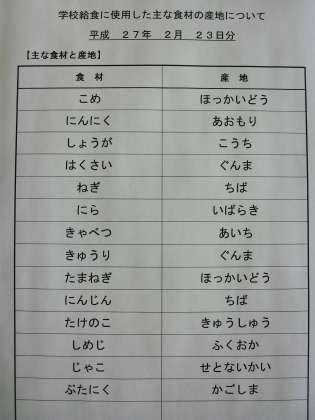 学校給食に使用した主な食材の産地について
平成　２７年　２月　２３日分
【主な食材と産地】
食　材　産　地
こめ　ほっかいどう
にんにく　あおもり
しょうが　こうち
はくさい　ぐんま
ねぎ　ちば
にら　いばらき
きゃべつ　あいち
きゅうり　ぐんま
たまねぎ　ほっかいどう
にんじん　ちば
たけのこ　きゅうしゅう
しめじ　ふくおか
じゃこ　せとないかい
ぶたにく　かごしま